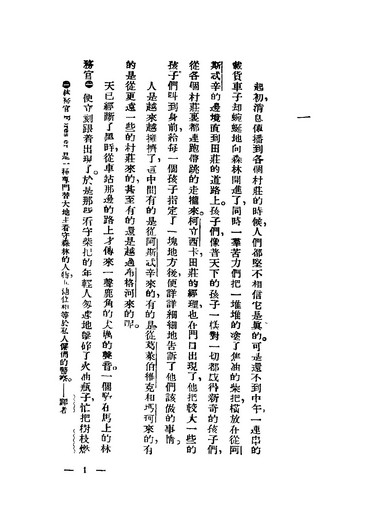 一
起初,消息傳播到各個村莊的時候,人們都堅不相信它是真的。可是還不到中午,一連串的
載貨車子却蜿蜒地向森林開進了,同時一羣苦力們把一堆堆的塗了焦油的柴把,橫放在從阿
斯忒辛的邊境直到田莊的道路上。孩子們,像普天下的孩子一樣對一切都感得新奇的孩子們,
從各個村莊裏都連跑帶跳的走攏來。柯立西卡田莊的經理也在門口出現了,他把較大一些的
孩子們叫到身前,給每一個孩子指定了一塊地方,後便詳詳細細地告訴了他們該做的事情。
人是越來越擁擠了。這中間有的是從阿斯忒辛來的,有的是從葛萊伯維克和瑪珂來的,有
的是從更遠一些的村莊來的,甚至有的還是越過布格河來的呢。
天已經漸漸了黑時,從車站那邊的路上才傳來一聲鹿角的大機的聲音。一個騎在馬上的林
務官㊀便立刻跟着出現了。於是那些看守柴把的年輕人匆遽地儲了火油瓶子,忙把樹枝燃
㊀林務官 Forester 是一種專門替大地主看守森林的人物,地位相等於私人僱傭的警察。——譯者
— 1 —